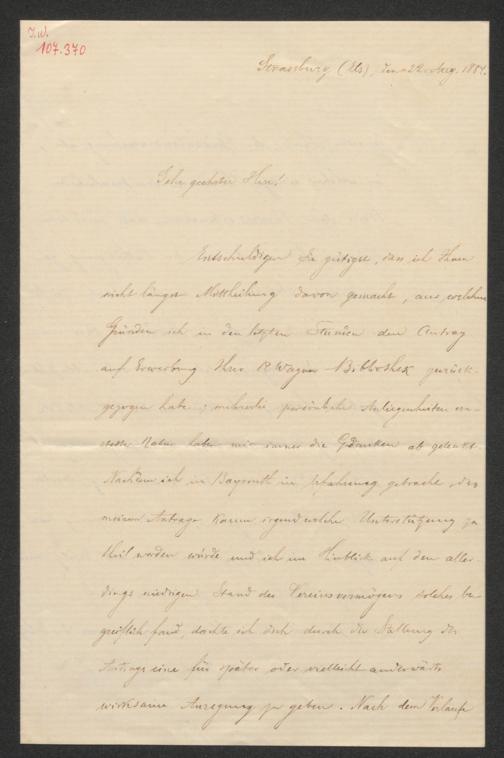 I.W.
107.370
Strassburg (Els), den 22. Aug. 1884.
Sehr geehrter Herr!
Entschuldigen Sie gütigst, dass ich Ihnen
nicht längst Mittheilung davon gemacht, aus welchen
Gründen ich in den letzten Stunden den Antrag
auf Erwerbung Ihrer R. Wagner-Bibliothek zurück-
gezogen habe; mehrerlei persönliche Anliegenheiten ern-
stester Natur haben mir immer die Gedanken ab gelenkt.
Nachdem ich in Bayreuth in Erfahrung gebracht, dass
meinem Antrage kaum irgend welche Unterstützung zu
theil werden würde und ich im Hinblick auf den aller-
dings niedrigen Stand des Vereinsvermögens solches be-
greiflich fand, dachte ich doch durch die Stellung des
Antrags eine für später oder vielleicht anderwärts
wirksame Anregung zu geben. Nach dem Verlaufe